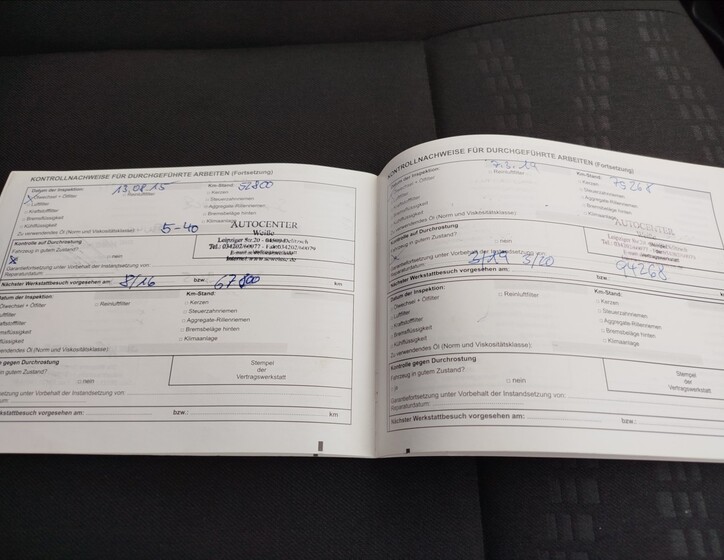 KONTROLLNACHWEISE FÜR DURCHGEFÜHRTE ARBEITEN (Fortsetzung)
Datum der Inspektion: 13.08.15 Km-Stand: 52800
Ölwechsel + Ölfilter Reinluftfilter Kerzen
Luftfilter Steuerzahnriemen
Kraftstofffilter Aggregate-Rillenriemen
Bremsflüssigkeit Bremsbeläge hinten
Kühlflüssigkeit Klimaanlage
Zu verwendendes Öl (Norm und Viskositätsklasse): 5-40
Kontrolle auf Durchrostung
Fahrzeug in gutem Zustand?
nein
AUTOCENTER
Weiße
Leipziger Str. 20 -
Garantiefortsetzung unter Vorbehalt der Instandsetzung von
Reparaturdatum:
Nächster Werkstattbesuch vorgesehen am: 8/16 bzw.: 67800 km
atum der Inspektion: Km-Stand:
Ölwechsel + Ölfilter Reinluftfilter Kerzen
uftfilter Steuerzahnriemen
aftstofffilter Aggregate-Rillenriemen
remsflüssigkeit Bremsbeläge hinten
ühlflüssigkeit Klimaanlage
wendendes Öl (Norm und Viskositätsklasse):
e gegen Durchrostung
g in gutem Zustand?
nein
Stempel
der
Vertragswerkstatt
setzung unter Vorbehalt der Instandsetzung von
um:
erkstattbesuch vorgesehen am: bzw.: km
KONTROLLNACHWEISE FÜR DURCHGEFÜHRTE ARBEITEN (Fortsetzung)
Datum der Inspektion: Km-Stand: 75268
Ölwechsel + Ölfilter Reinluftfilter Kerzen
Luftfilter Steuerzahnriemen
Kraftstofffilter Aggregate-Rillenriemen
Bremsflüssigkeit Bremsbeläge hinten
Kühlflüssigkeit Klimaanlage
Zu verwendendes Öl (Norm und Viskositätsklasse):
Kontrolle auf Durchrostung
Fahrzeug in gutem Zustand?
nein
AUTOCENTER
Garantiefortsetzung unter Vorbehalt der Instandsetzung von
Reparaturdatum:
Nächster Werkstattbesuch vorgesehen am: 3/20 bzw.: 94268 km
Datum der Inspektion: Km-Stand:
Ölwechsel + Ölfilter Reinluftfilter Kerzen
Luftfilter Steuerzahnriemen
Kraftstofffilter Aggregate-Rillenriemen
Bremsflüssigkeit Bremsbeläge hinten
Kühlflüssigkeit Klimaanlage
Zu verwendendes Öl (Norm und Viskositätsklasse):
Kontrolle gegen Durchrostung
Fahrzeug in gutem Zustand?
ja nein
Stempel
der
Vertragswerkstatt
Garantiefortsetzung unter Vorbehalt der Instandsetzung von:
Reparaturdatum:
Nächster Werkstattbesuch vorgesehen am: bzw.: